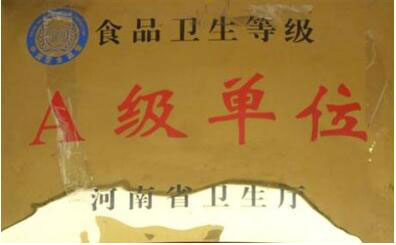 食品卫生等级
A级单位
河南省卫生厅